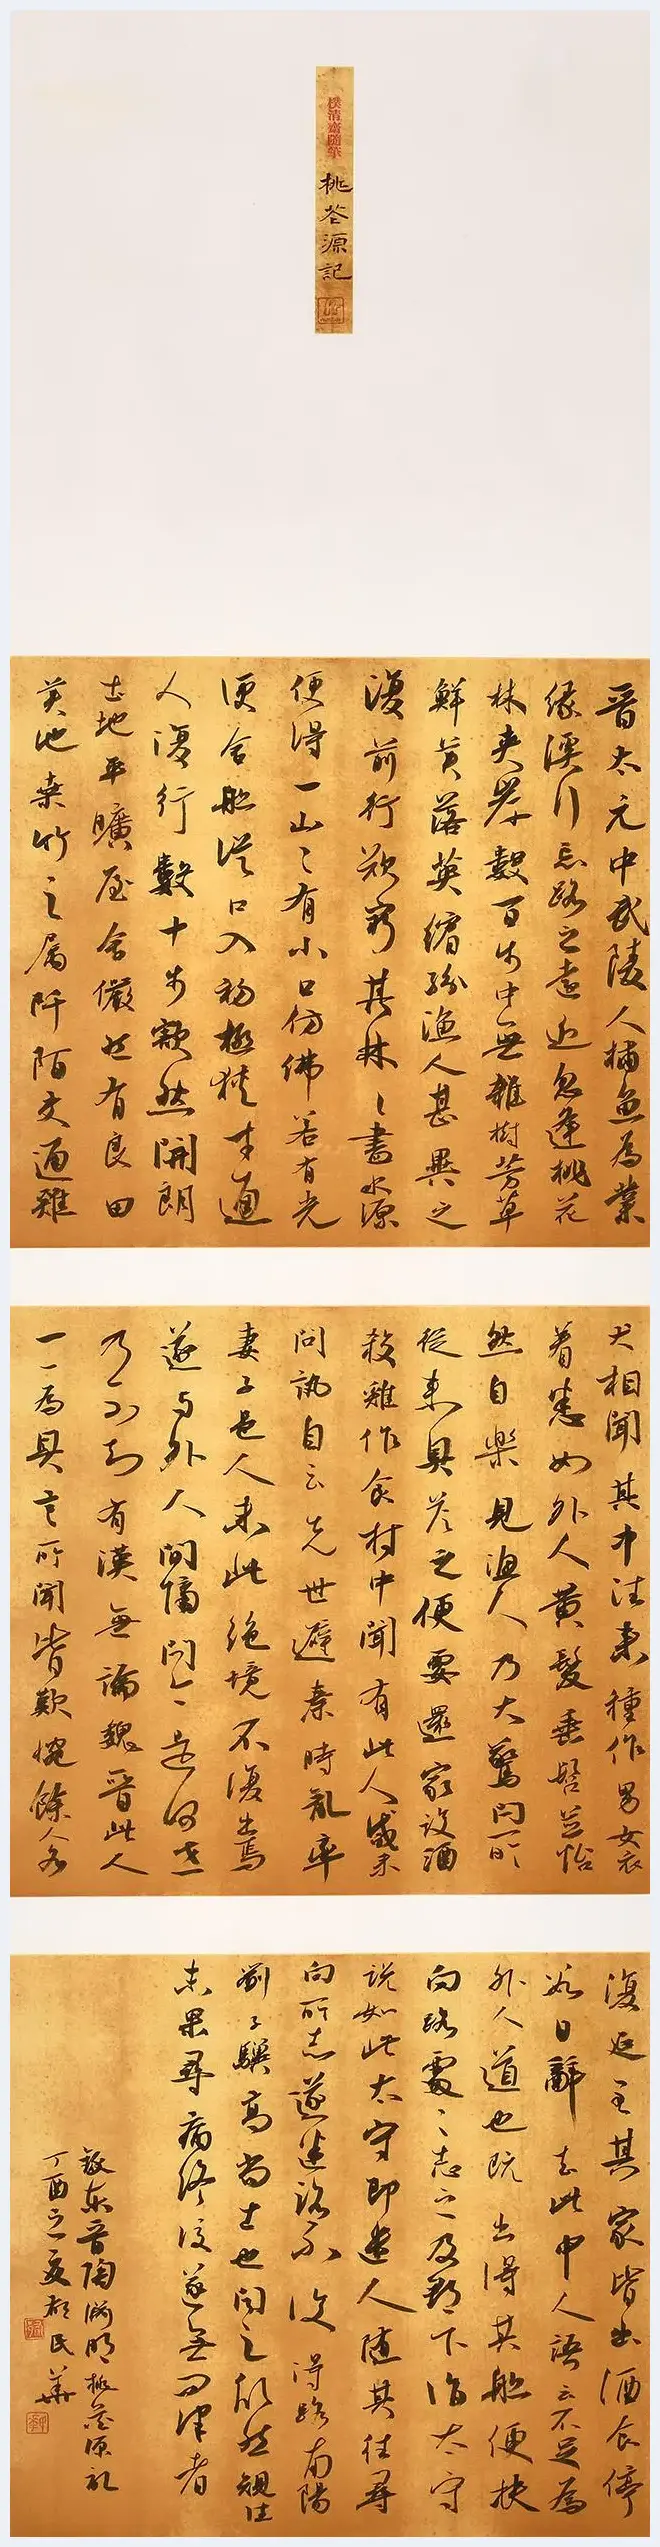 樸清齋隨筆
桃花源記
晉太元中武陵人捕魚為業
緣溪行忘路之遠近忽逢桃花
林夾岸數百步中無雜樹芳草
鮮美落英繽紛漁人甚異之
復前行欲窮其林〻盡水源
便得一山〻有小口仿佛若有光
便舍船從口入初極狹才通
人復行數十步豁然開朗
土地平曠屋舍儼然有良田
美池桑竹之屬阡陌交通雞
犬相聞其中往來種作男女衣
着悉如外人黃髮垂髫並怡
然自樂見漁人乃大驚問所
從來具答之便要還家設酒
殺雞作食村中聞有此人咸來
問訊自云先世避秦時亂率
妻子邑人來此絕境不復出焉
遂與外人間隔問今是何世
乃不知有漢無論魏晉此人
一一為具言所聞皆歎惋餘人各
復延至其家皆出酒食停
數日辭去此中人語云不足為
外人道也既出得其船便扶
向路處〻志之及郡下詣太守
說如此太守即遣人隨其往尋
向所志遂迷路不復得路南陽
劉子驥高尚士也聞之欣然規往
未果尋病終後遂無問津者
錄東晉陶淵明桃花源記
丁酉之夏顧民華